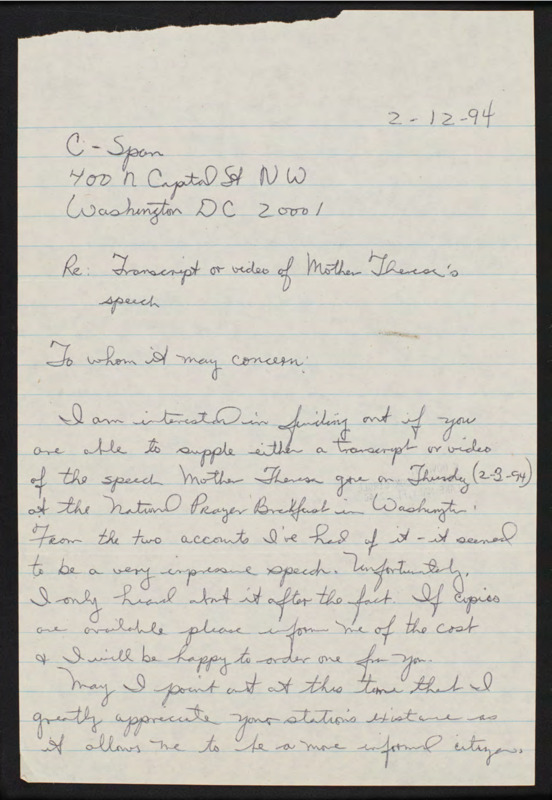 2-12-94
C-Span
400 N Capitol St NW
Washington DC 20001
Re: Transcript or video of Mother Theresa's
speech
To whom it may concern:
I am interested in finding out if you
are able to supple either a transcript or video
of the speech Mother Theresa gave on Thursday (2-3-94)
at the National Prayer Breakfast in Washington.
From the two accounts I've had of it - it seemed
to be a very impressive speech. Unfortunately,
I only heard about it after the fact. If copies
are available please inform me of the cost
& I will be happy to order one from you.
May I point out at this time that I
greatly appreciate your station's existance as
it allows me to be a more informed citizen.